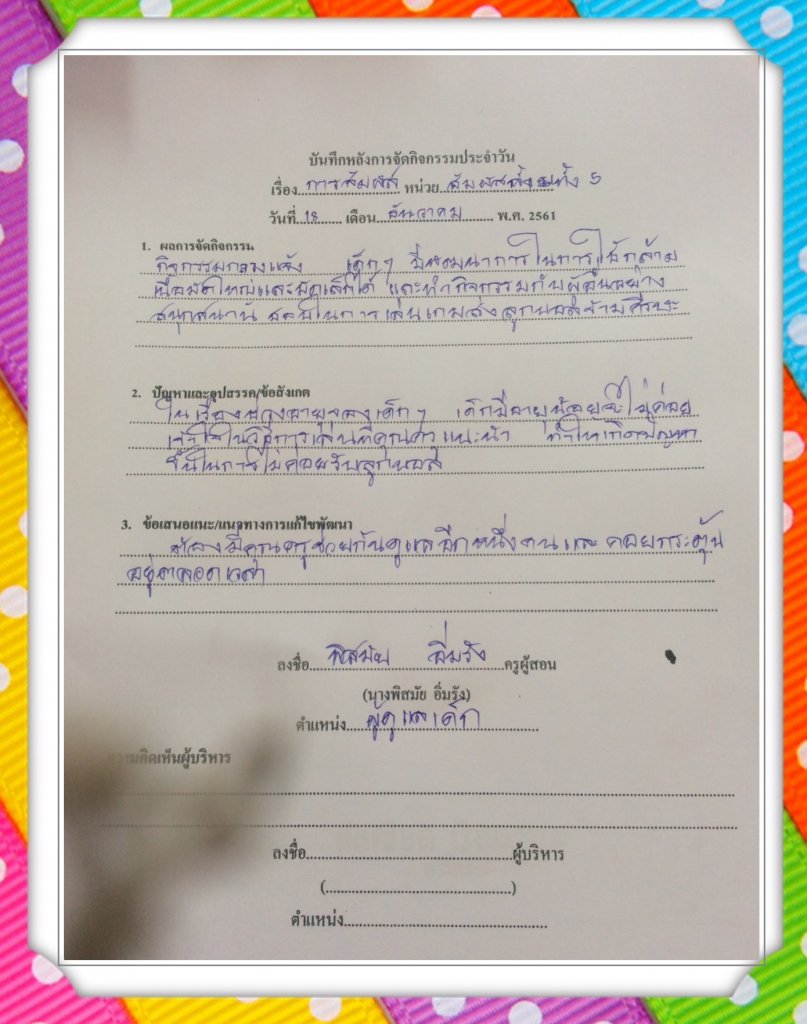 บันทึกหลังการจัดกิจกรรมประจำวัน
เรื่อง การสัมผัส หน่วย สัมผัสทั้ง 5
วันที่ 18 เดือน ธันวาคม พ.ศ. 2561
1. ผลการจัดกิจกรรม
กิจกรรมกลางแจ้ง เด็กๆ มีพัฒนาการในการใช้กล้าม
เนื้อมัดใหญ่และมัดเล็กได้ และทำกิจกรรมกับผู้อื่นอย่าง
สนุกสนาน ในการเล่นเกมส่งลูกบอลข้ามศีรษะ
2. ปัญหาและอุปสรรค/ข้อสังเกต
ในเรื่องช่วงอายุของเด็กๆ เด็กมีอายุน้อยจะไม่ค่อย
เข้าใจในวิธีการเล่นที่คุณครูแนะนำ ทำให้เกิดปัญหา
ขึ้นในการไม่ค่อยรับลูกบอล
3. ข้อเสนอแนะ/แนวทางการแก้ไขพัฒนา
ต้องมีคุณครูช่วยกันดูแลอีกหนึ่งคนและคอยกระตุ้น
อยู่ตลอดเวลา
ลงชื่อ พิสมัย อิ่มรัง ครูผู้สอน
(นางพิสมัย อิ่มรัง)
ตำแหน่ง ผู้ดูแลเด็ก
ความคิดเห็นผู้บริหาร
ลงชื่อ ผู้บริหาร
( )
ตำแหน่ง